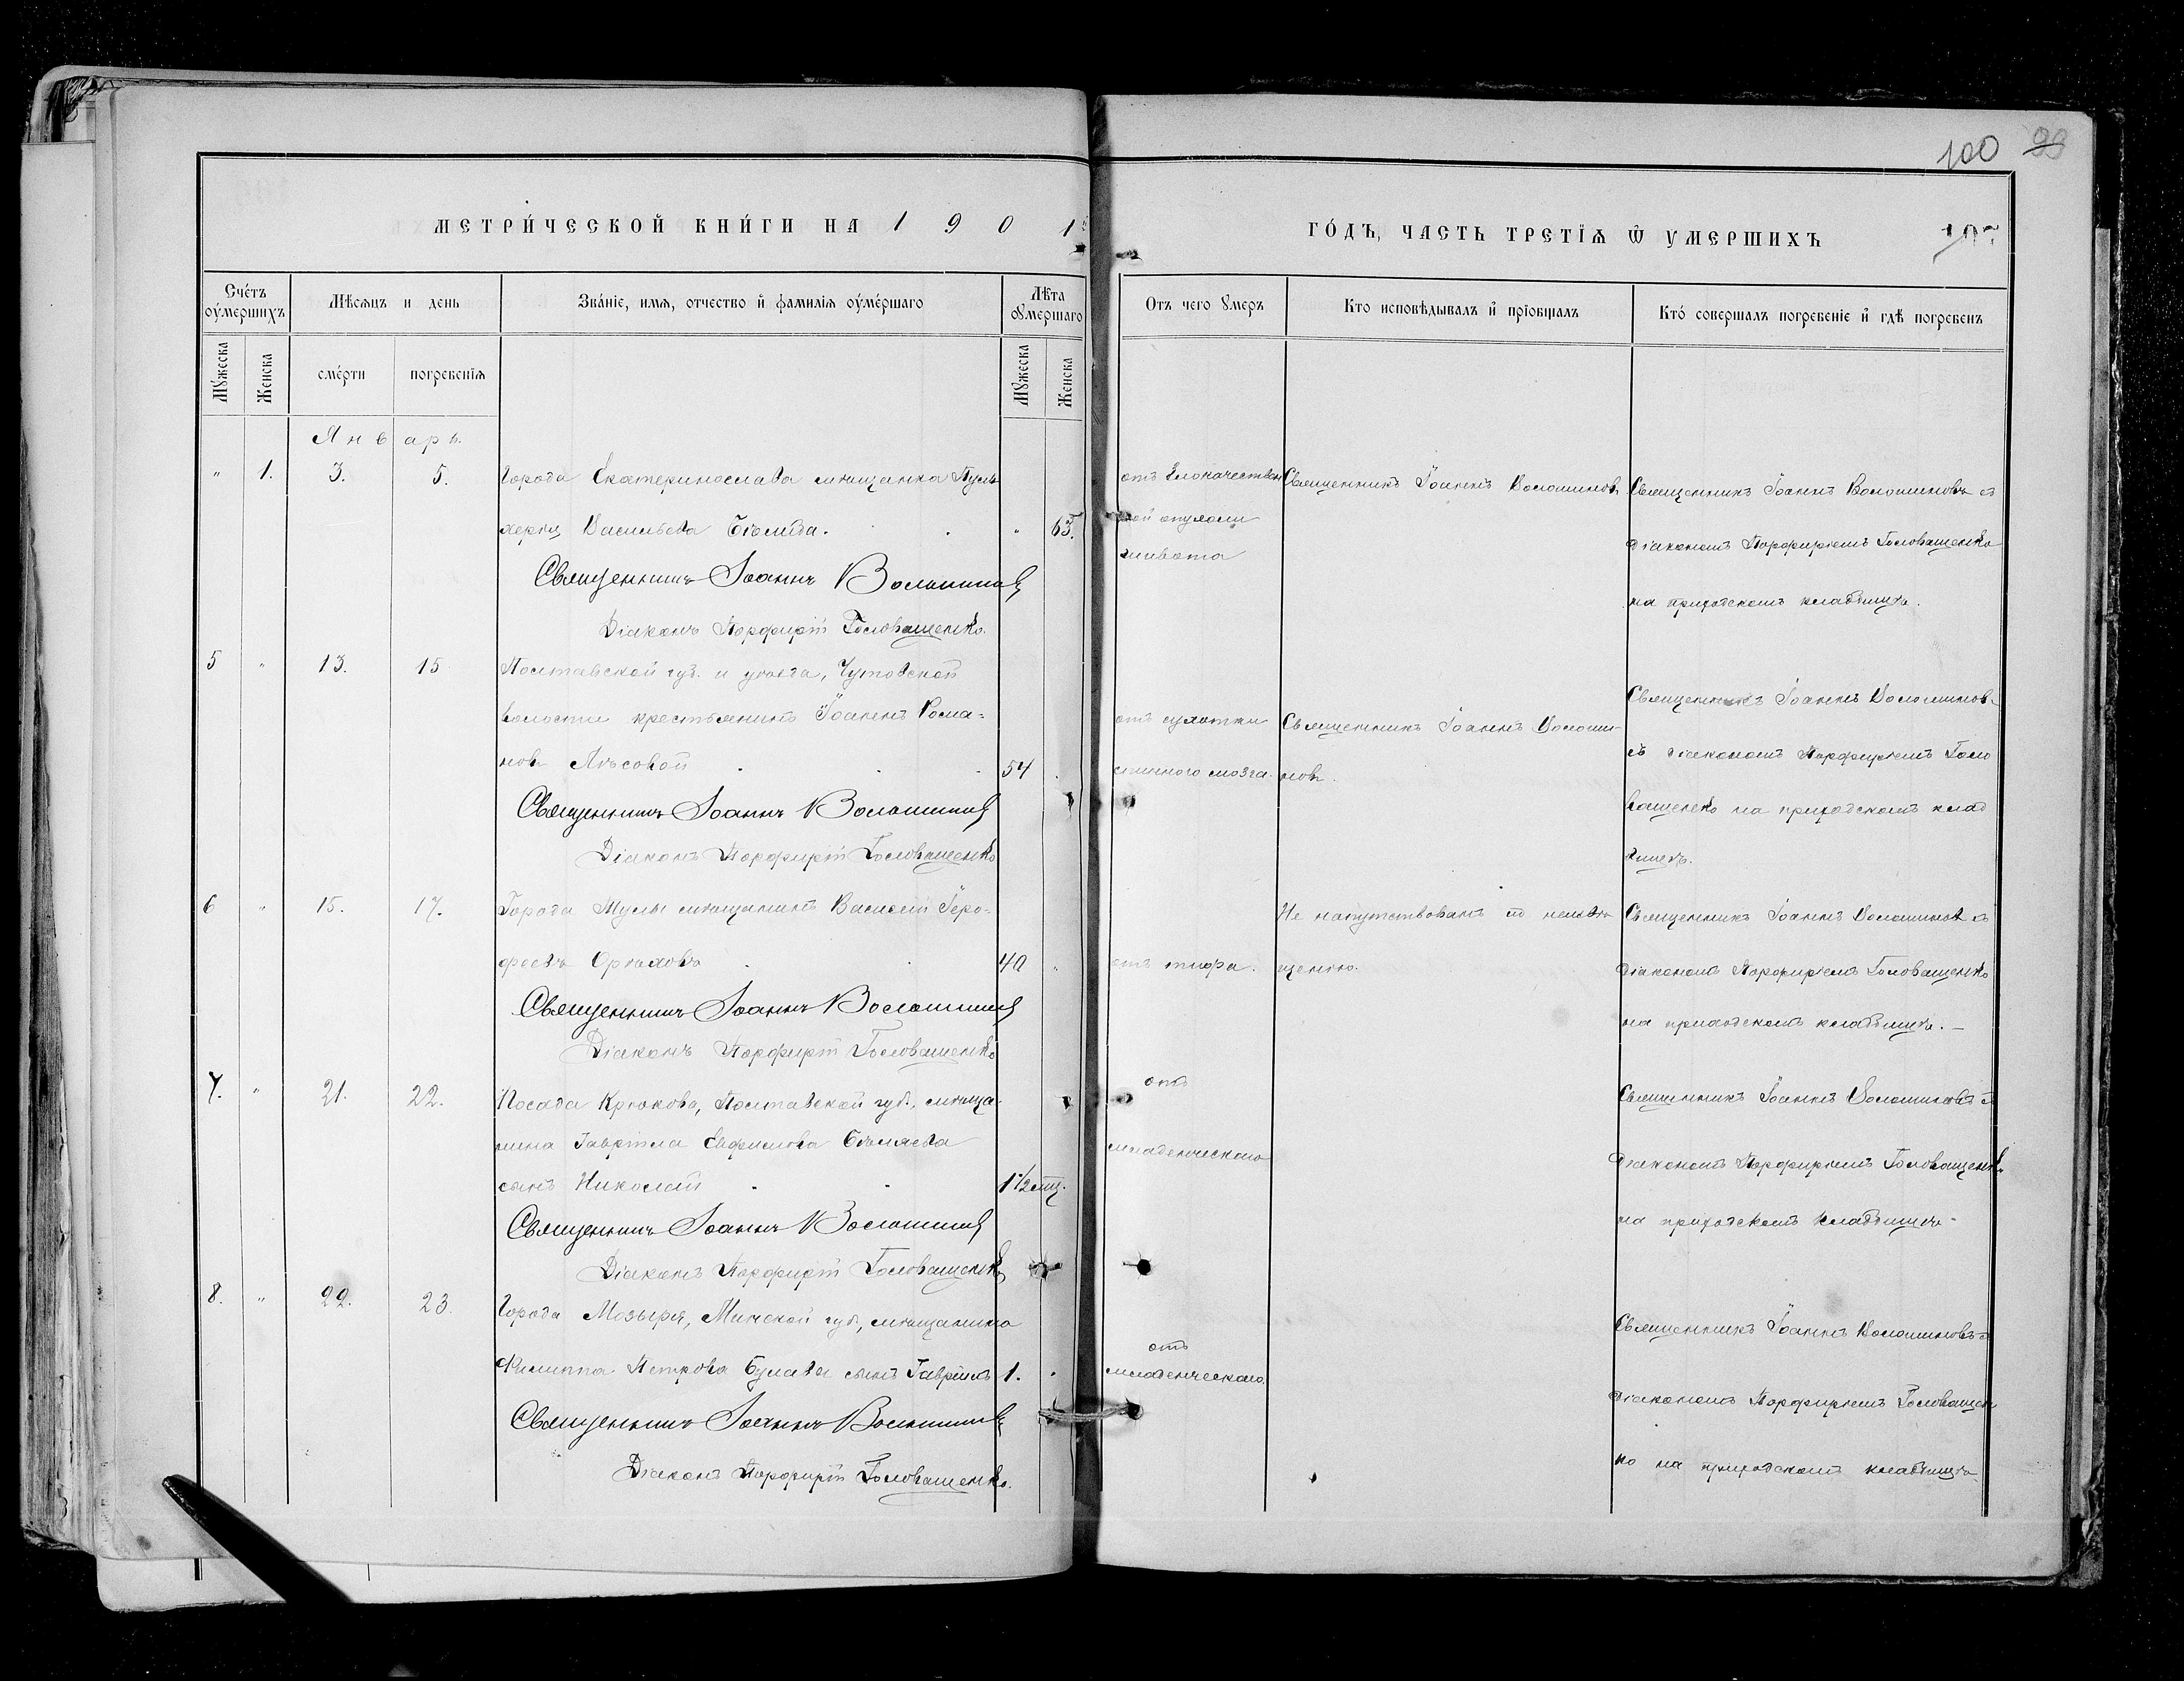 100 99
МЕТРИ́ЧЕСКОЙ КНИ́ГИ НА 1901
ГО́ДЪ, ЧАСТЬ ТРЕТІѦ Ѿ УМЕРШИХЪ
Сче́тъ оу҆ме́ршихъ
Мѣсяцъ и день
Зва́ніе, имя, отчество и҆ фамилія оу҆ме́ршаго
Лѣта оумершаго
Отъ чего умеръ
Кто исповѣдывалъ и҆ пріобщалъ
Кто́ совершалъ погребеніе и҆ гдѣ погребенъ
Мужеска
Женска
сме́рти
погребенія
Мужеска
Женска
Январь.
" 1. 3. 5. Города Екатеринослава мѣщанка Пуль
херія Васильева Бѣлиба. " 63.
Священникъ Іоаннъ Волошиновъ
Діаконъ Порфирій Головащенко.
отъ злокачествен
ной опухоли
живота
Священникъ Іоаннъ Волошиновъ
Священникъ Іоаннъ Волошиновъ съ
діакономъ Порфиріемъ Головащенко
на приходскомъ кладбищѣ.
5 " 13. 15 Полтавской губ. и уѣзда, Чутовской
волости крестьянинъ Іоаннъ Рома-
новъ Лѣсовой 54
Священникъ Іоаннъ Волошиновъ
Діаконъ Порфирій Головащенко
отъ сухотки
спинного мозга.
Священникъ Іоаннъ Волоши-
новъ.
Священникъ Іоаннъ Волошиновъ
съ діакономъ Порфиріемъ Голо
ващенко на приходскомъ клад
бищѣ.
6 " 15. 17. Города Тулы мѣщанинъ Василій Еро-
феевъ Орѣховъ 40 "
Священникъ Іоаннъ Волошиновъ
Діаконъ Порфирій Головащенко
отъ тифа.
Не напутствованъ по неизвѣ
щенію.
Священникъ Іоаннъ Волошиновъ съ
діакономъ Порфиріемъ Головащенко
на приходскомъ кладбищѣ.
7. " 21. 22. Посада Крюкова, Полтавской губ., мѣща-
нина Гавріила Евфимова Бѣляева
сынъ Николай 1 1/2 мѣц.
Священникъ Іоаннъ Волошиновъ
Діаконъ Порфирій Головащенко
отъ
младенческаго
Священникъ Іоаннъ Волошиновъ съ
діакономъ Порфиріемъ Головащенко
на приходскомъ кладбищѣ.
8. " 22. 23. Города Мозыря, Минской губ., мѣщанина
Филиппа Петрова Булавы сынъ Гавріилъ 1. "
Священникъ Іоаннъ Волошиновъ
Діаконъ Порфирій Головащенко.
отъ
младенческаго.
Священникъ Іоаннъ Волошиновъ съ
діакономъ Порфиріемъ Головащен
ко на приходскомъ кладбищѣ